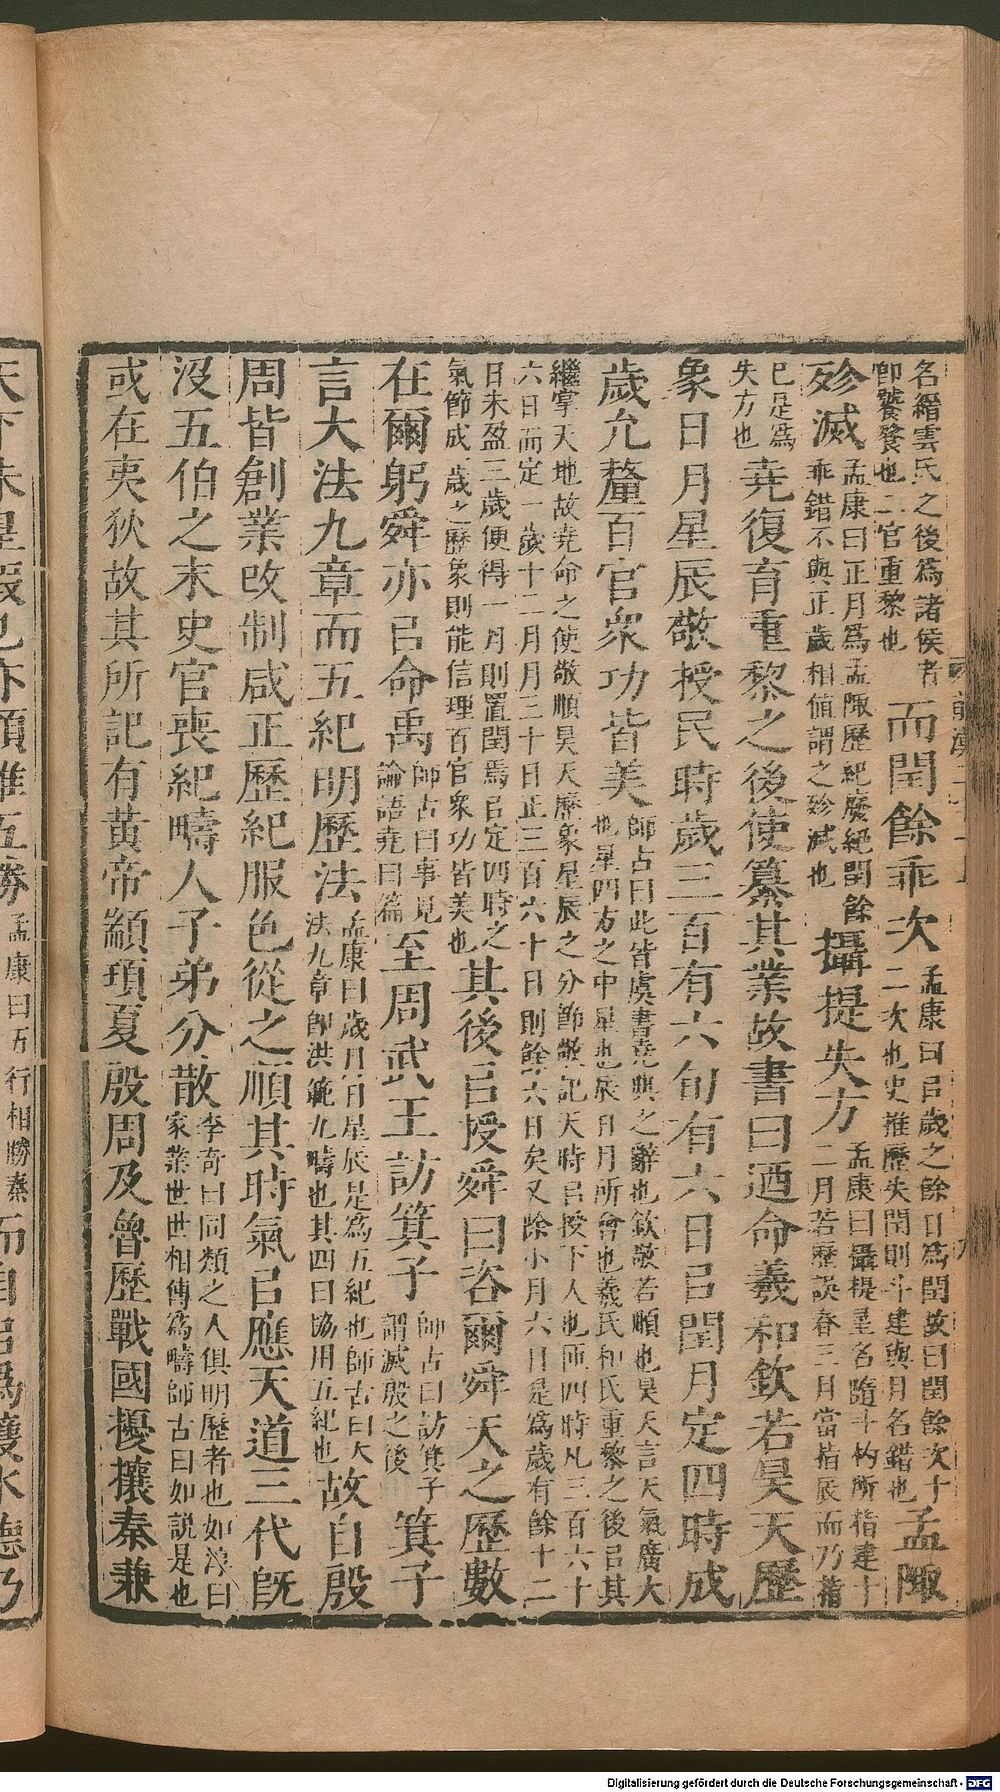 名縉雲氏之後爲諸侯者即饕餮也二官重黎也而閏餘乖次孟康曰㠯歲之餘日爲閏故曰閏餘次十二次也史推歷失閏則斗建與月名錯也孟陬
殄滅孟康曰正月爲孟陬歷紀廢絕閏餘乖錯不與正歲相值謂之殄滅也攝提失方孟康曰攝提星名隨斗杓所指建十二月若歷誤春三月當指辰而乃指
巳是爲失方也堯復育重黎之後使纂其業故書曰迺命羲和欽若昊天歷
象日月星辰敬授民時歲三百有六旬有六日㠯閏月定四時成
歲允釐百官衆功皆美師古曰此皆虞書堯典之辭也欽敬若順也昊天言天氣廣大也星四方之中星也辰日月所會也羲氏和氏重黎之後㠯其
繼掌天地故堯命之使敬順昊天歷象星辰之分節敬記天時㠯授下人也匝四時凡三百六十六日而定一歲十二月月三十日正三百六十日則餘六日矣又除小月六日是爲歲有餘十二
日未盈三歲便得一月則置閏焉㠯定四時之氣節成一歲之歷象則能信理百官衆功皆美也其後㠯授舜曰咨爾舜天之歷數
在爾躬舜亦㠯命禹師古曰事見論語堯曰篇至周武王訪箕子師古曰訪箕子謂滅殷之後箕子
言大法九章而五紀明歷法孟康曰歲月日星辰是爲五紀也師古曰大法九章即洪範九疇也其四曰協用五紀也故自殷
周皆創業改制咸正歷紀服色從之順其時氣㠯應天道三代旣
沒五伯之末史官喪紀疇人子弟分散李奇曰同類之人俱明歷者也如淳曰家業世世相傳爲疇師古曰如說是也
或在夷狄故其所記有黃帝顓頊夏殷周及魯歷戰國擾攘秦兼
天下未皇暇也亦頗推五勝孟康曰五行相勝秦而自㠯爲獲水德乃
Digitalisierung gefördert durch die Deutsche Forschungsgemeinschaft - DFG